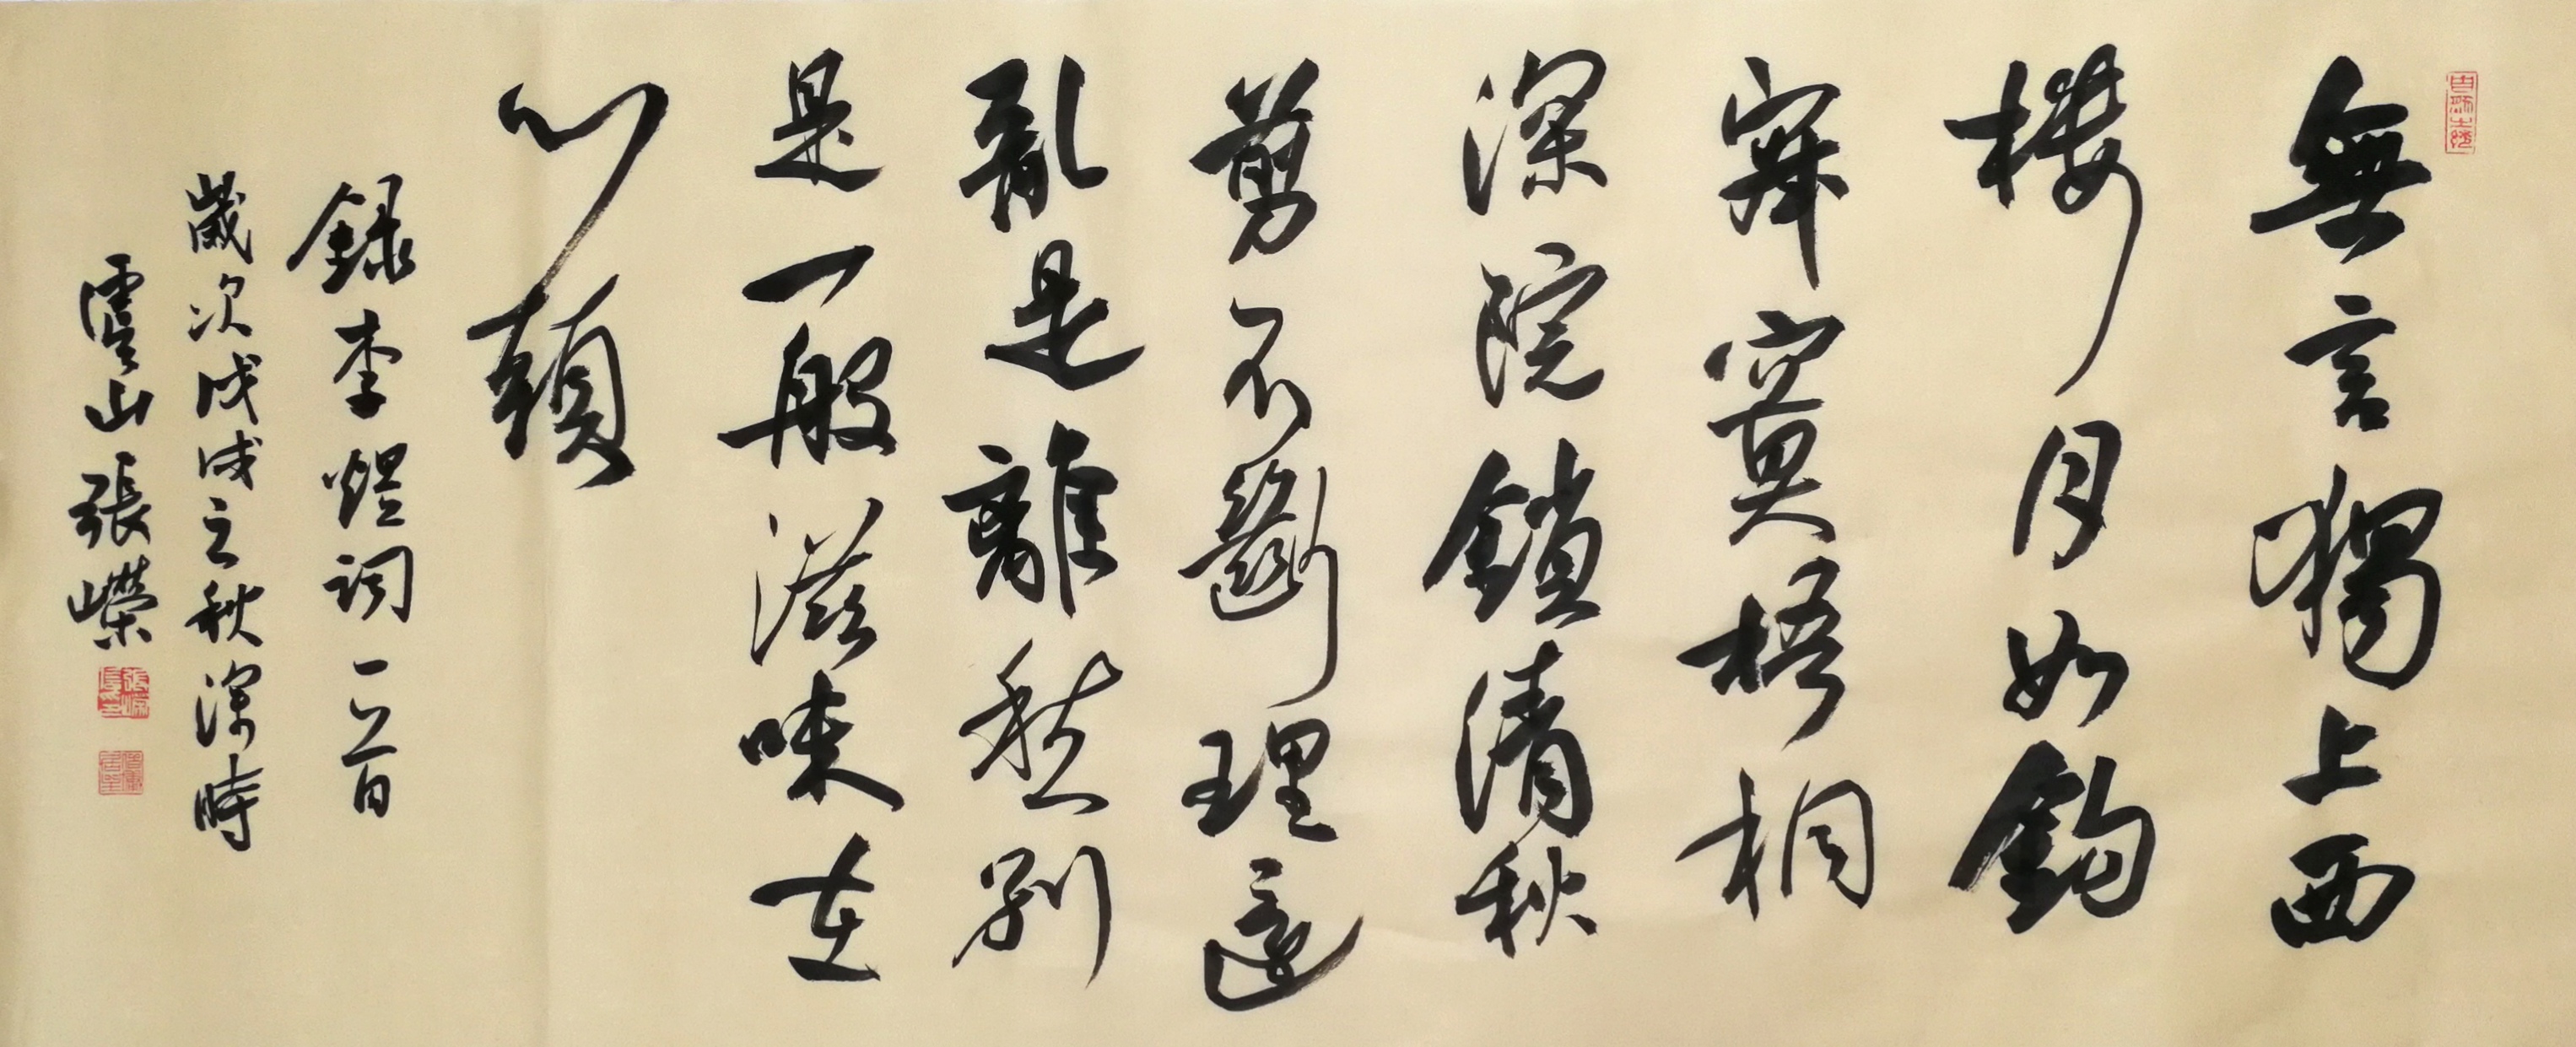 無言獨上西
樓月如鈎
寂寞梧桐
深院鎖清秋
剪不斷理還
亂是離愁別
是一般滋味在
心頭
錄李煜詞一首
歲次戊戌之秋深時
虞山張嶸